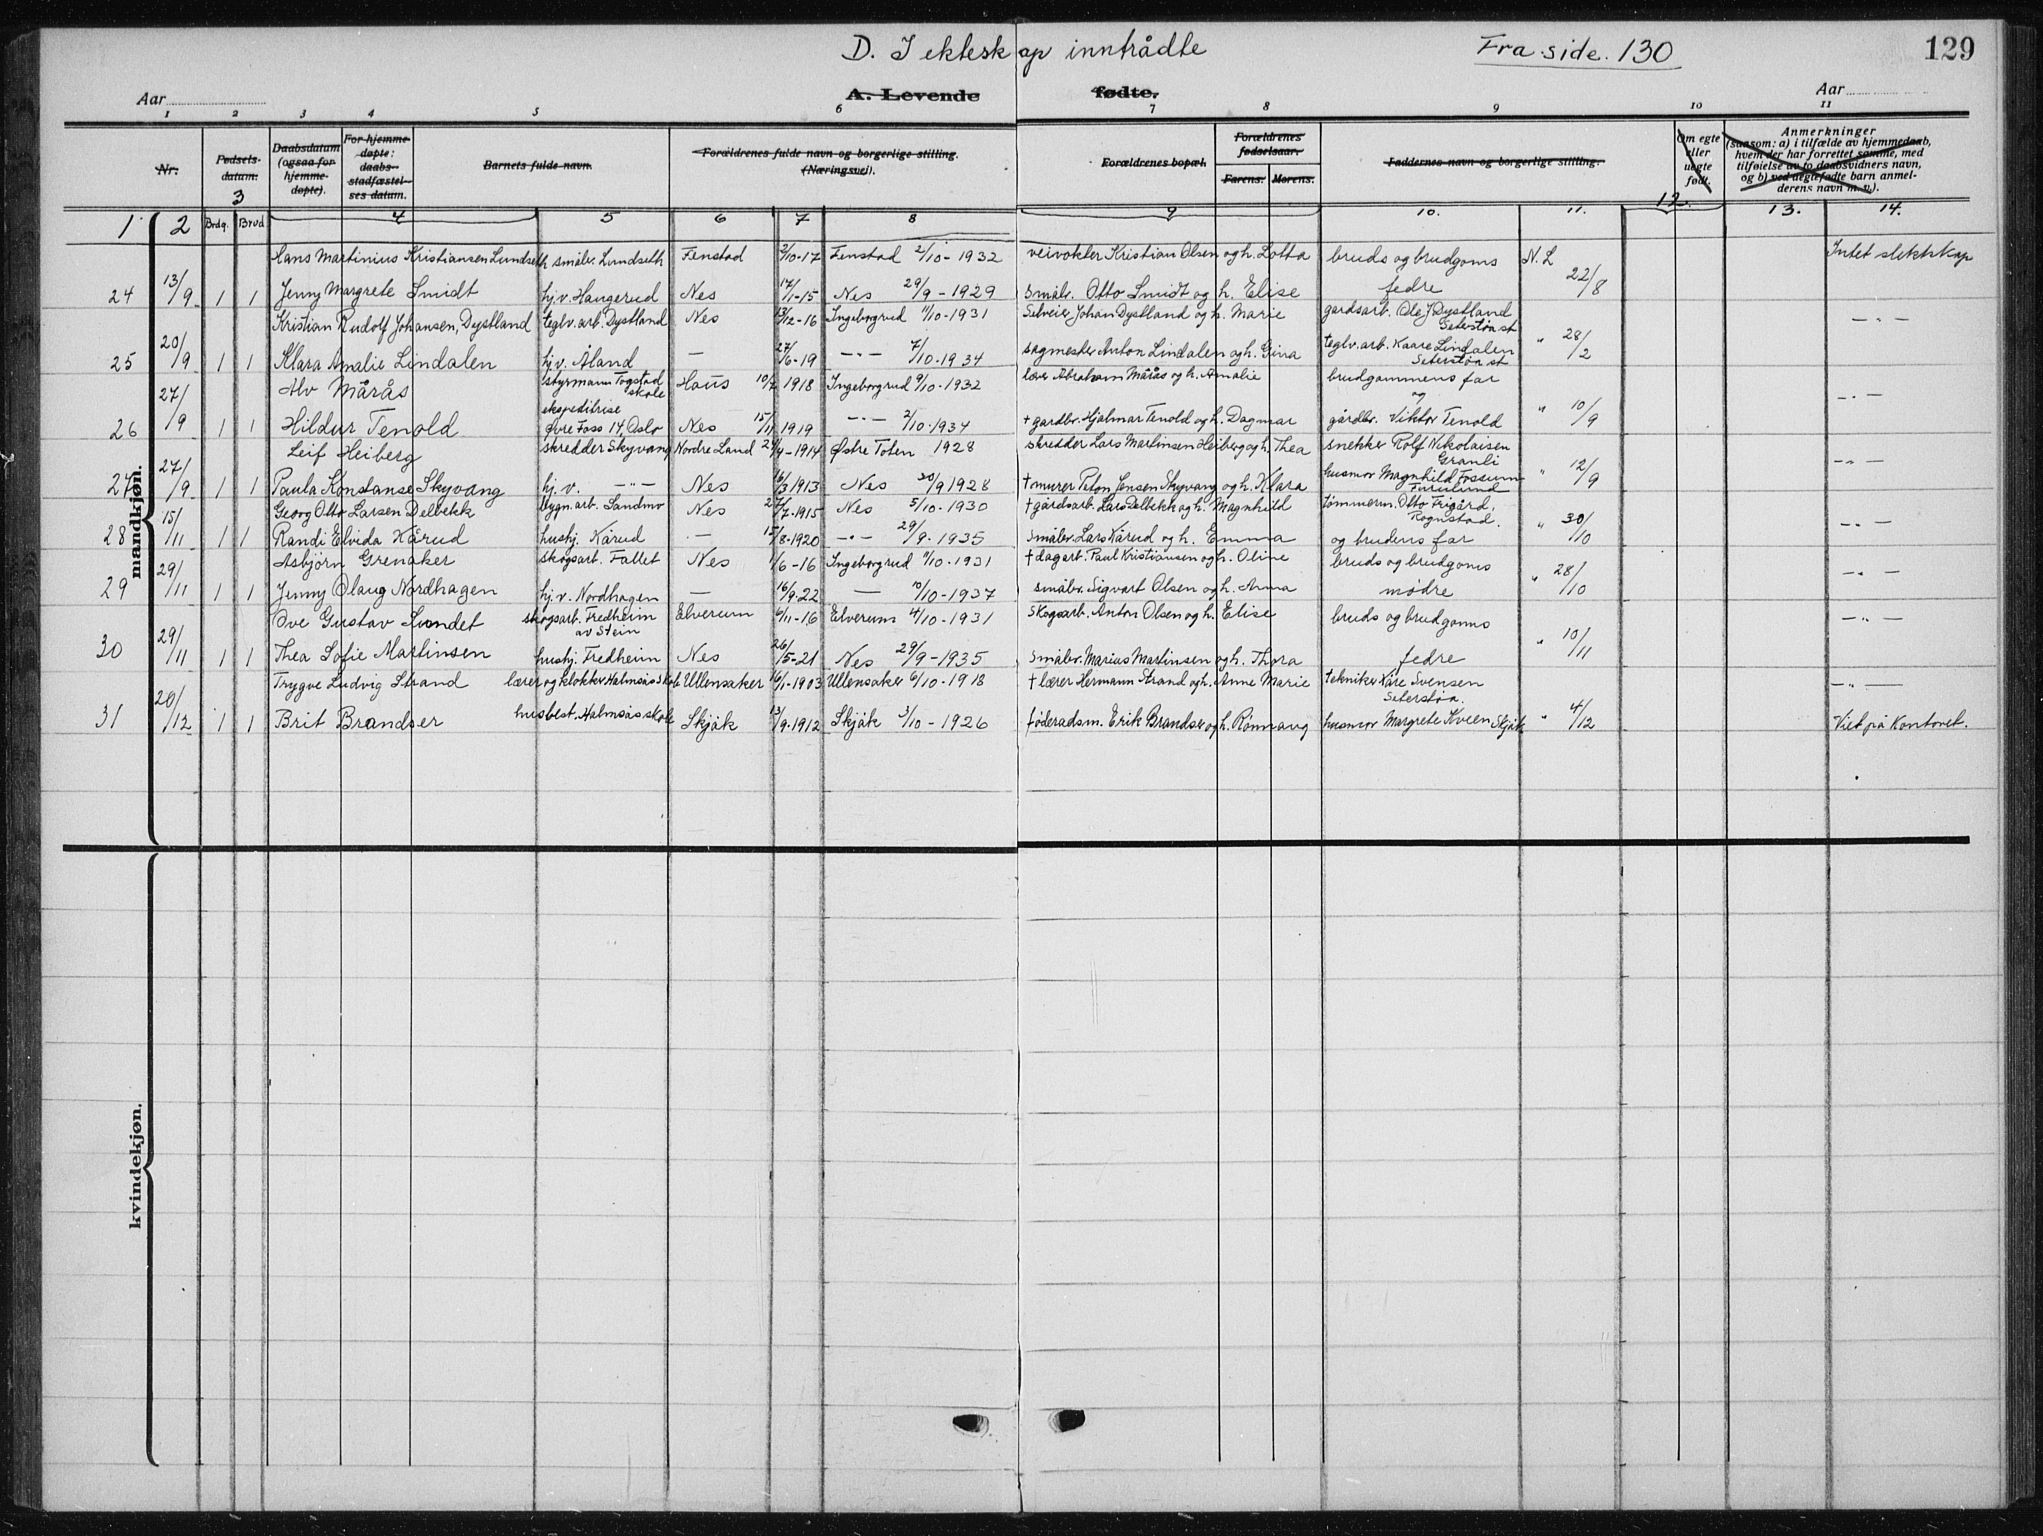 D. I ekteskap inntrådte Fra side. 130 129
Aar A. Levende fødte. Aar
1 2 3 4 5 6 7 8 9 10 11
Nr. Fødsels-datum. Daabsdatum (ogsaa for hjemme-døpte). For hjemme-døpte: daabs-stadfæstel-ses datum. Barnets fulde navn. Forældrenes fulde navn og borgerlige stilling. (Næringsvei). Forældrenes bopæl. Forældrenes fødselsaar. Farens. Morens. Faddernes navn og borgerlige stilling. Om egte eller uegte født. Anmerkninger (saasom: a) i tilfælde av hjemmedaab, hvem der har forrettet samme, med tilføielse av to daabsvidners navn, og b) ved uegtefødte barn anmel-derens navn m. v.).
1 2 3 Brdg. Brud 4 5 6 7 8 9 10. 11. 12. 13. 14.
Hans Martinius Kristiansen Lundseth småbr. Lundseth Fenstad 2/10-17 Fenstad 2/10-1932 veivokter Kristian Olsen og h. Lotta bruds og brudgoms N.L Intet slektskap
24 13/9 1 1 Jenny Margrete Smidt hj.v. Haugerud Nes 17/1-15 Nes 29/9-1929 Småbr. Otto Smidt og h. Elise fedre 22/8
Kristian Rudolf Johansen, Dystland teglv.arb. Dystland Nes 13/12-16 Ingeborgrud 11/10-1931 Selveier Johan Dystland og h. Marie gardsarb. Ole J Dystland Seterstøa st — " —
25 20/9 1 1 Klara Amalie Lindalen hj.v. Åland — 27/6-19 — " — 7/10-1934 sagmester Anton Lindalen og h. Gina teglv. arb. Kaare Lindalen Seterstøa st " 28/2
Alv Mårås styrmann Fogstad skole Haus 10/7 1918 Ingeborgrud 9/10-1932 lærer Abraham Mårås og h. Amalie brudgommens far og - " -
26 27/9 1 1 Hildur Tenold ekspeditrise Øvre Foss 14 Oslo Nes 15/11 1919 — " — 2/10-1934 + gardbr. Hjalmar Tenold og h. Dagmar gårdbr. Viktor Tenold " 10/9
Leif Heiberg skredder Skyvang Nordre Land 24/4-1914 Østre Toten 1928 skredder Lars Martinsen Heiberg og h. Thea snekker Rolf Nikolaisen Granli — " —
27 27/9 1 1 Paula Konstanse Skyvang hj. v. — " — Nes 16/3 1913 Nes 30/9 1928 + murer Peton Jensen Skyvang og h. Klara husmor Magnhild Fossum Furulund " 12/9
Georg Otto Larsen Delbekk bygn.arb. Sandmo Nes 27/7-1915 Nes 5/10-1930 + gårdsarb. Lars Delbekk og h. Magnhild tømmerm. Otto Frigård, Rognstad. - " -
28 15/11 1 1 Randi Elvida Kårud hushj. Kårud — 15/8-1920 — " — 29/9-1935 Småbr. Lars Kårud og h. Emma og brudens far " 30/10
Asbjørn Grenaker skogsarb. Fallet Nes 1/6-16 Ingeborgrud 11/10-1931 + dagarb. Paul Kristiansen og h. Oline bruds og brudgoms - " -
29 29/11 1 1 Jenny Olaug Nordhagen hj.v. Nordhagen — 16/9-22 — 10/10-1937 småbr. Sigvart Olsen og h. Anna mødre " 28/10
Ove Gustav Sundet skogsarb. Fredheim av Stein Elverum 6/11-16 Elverum 4/10-1931 Skogsarb. Anton Olsen og h. Elise bruds og brudgoms - " -
30 29/11 1 1 Thea Sofie Martinsen hushj. Fredheim Nes 26/5-21 Nes 29/9-1935 Småbr. Marius Martinsen og h. Thora fedre " 10/11
Trygve Ludvig Strand lærer og klokker Halmsås skole Ullensaker 16/1-1903 Ullensaker 6/10-1918 + lærer Hermann Strand og h. Anne Marie tekniker Kåre Svensen Seterstøa. — " —
31 20/12 1 1 Brit Brandser husbest. Halmsås skole Skjåk 13/9-1912 Skjåk 3/10-1926 føderadsm. Erik Brandser og h. Rønnaug husmor Margrete Kveen Skjåk " 4/12 Viet på Kontoret.
mandkjøn.
kvindekjøn.